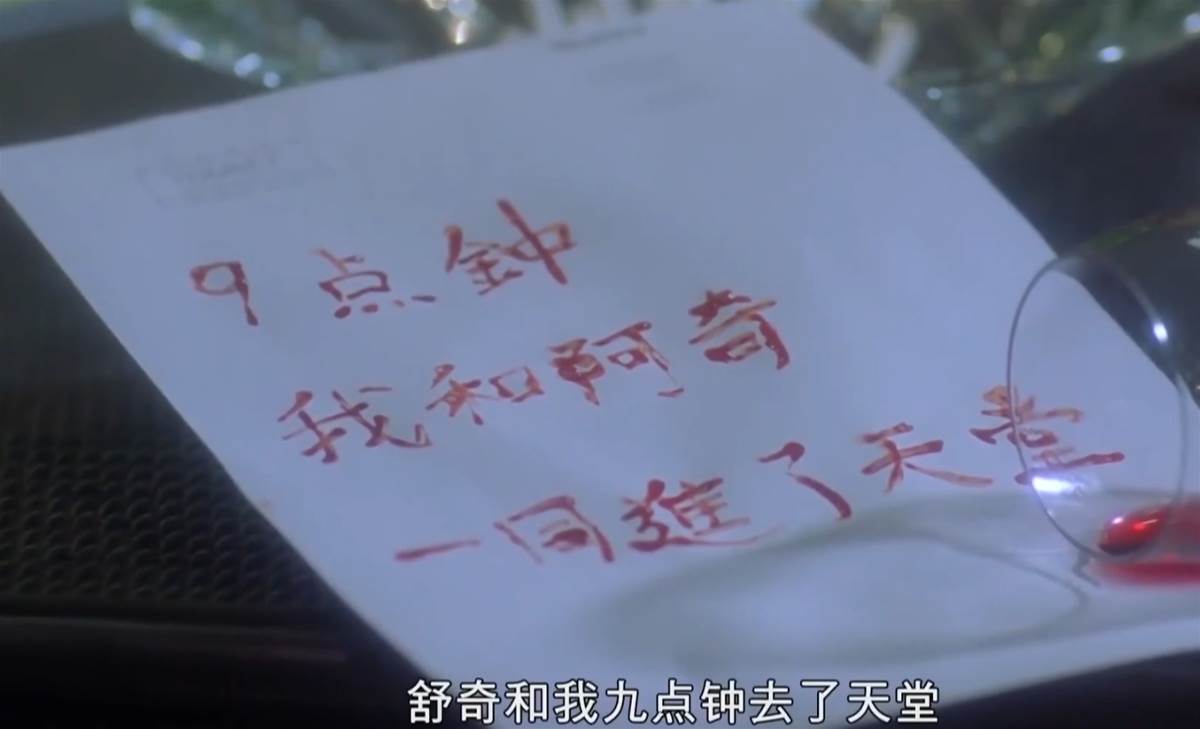 9点鐘
我和阿奇
一同進了天堂
舒奇和我九点钟去了天堂